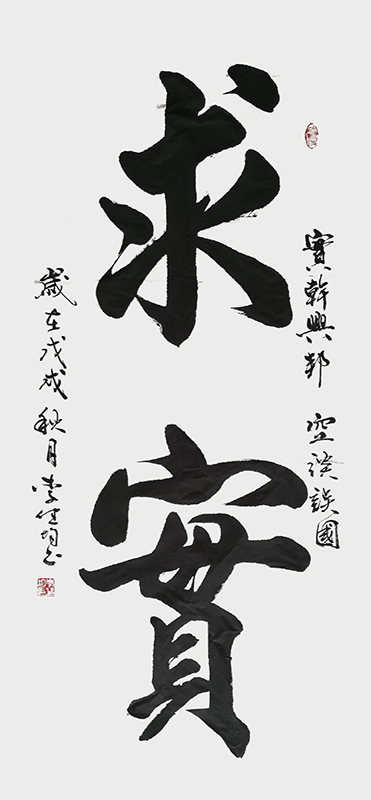 實幹興邦 空談誤國
求實
歲在戊戌秋月李书